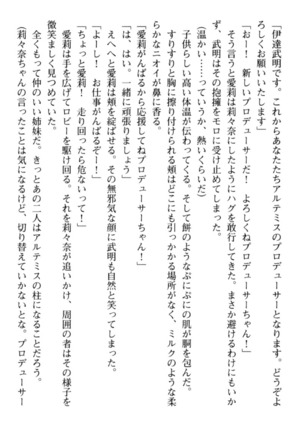 「伊達武明です。これからあなたたちアルテミスのプロデューサーとなります。どうぞよ
ろしくお願いいたします」
「おー！　新しいプロデューサーだ！　よろしくねプロデューサーちゃん！」
そう言うと愛莉は莉々奈にしたようにハグを敢行してきた。まさか避けるわけにもいか
ず、武明はその抱擁をモロに受け止めてしまった。
（温かい……っていうか、熱いくらいだ）
子供らしい高い体温が伝わってくる。そして餅のようなぷにぷにの肌が胴を包んだ。
すりすりと胸に擦り付けられる頬はどこにも引っかかる場所がなく、ミルクのような柔
らかなニオイが鼻に香る。
「愛莉がんばるから応援してねプロデューサーちゃん！」
「は、はい。一緒に頑張りましょう」
えへへーと愛莉は頬を綻ばせる。その無邪気な顔に武明も自然と笑ってしまった。
「よーし！　お仕事がんばるぞー！」
「ちょっと愛莉！　走り回ったら危ないって！」
愛莉は手を広げてロビーを駆け回る。それを莉々奈が追いかけ、周囲の者はその様子を
微笑ましく見つめていた。
全くもって仲のいい姉妹だ。きっとあの二人はアルテミスの柱になることだろう。
（莉々奈ちゃんの言ったことは気になるけど、切り替えていかないとな。プロデューサー